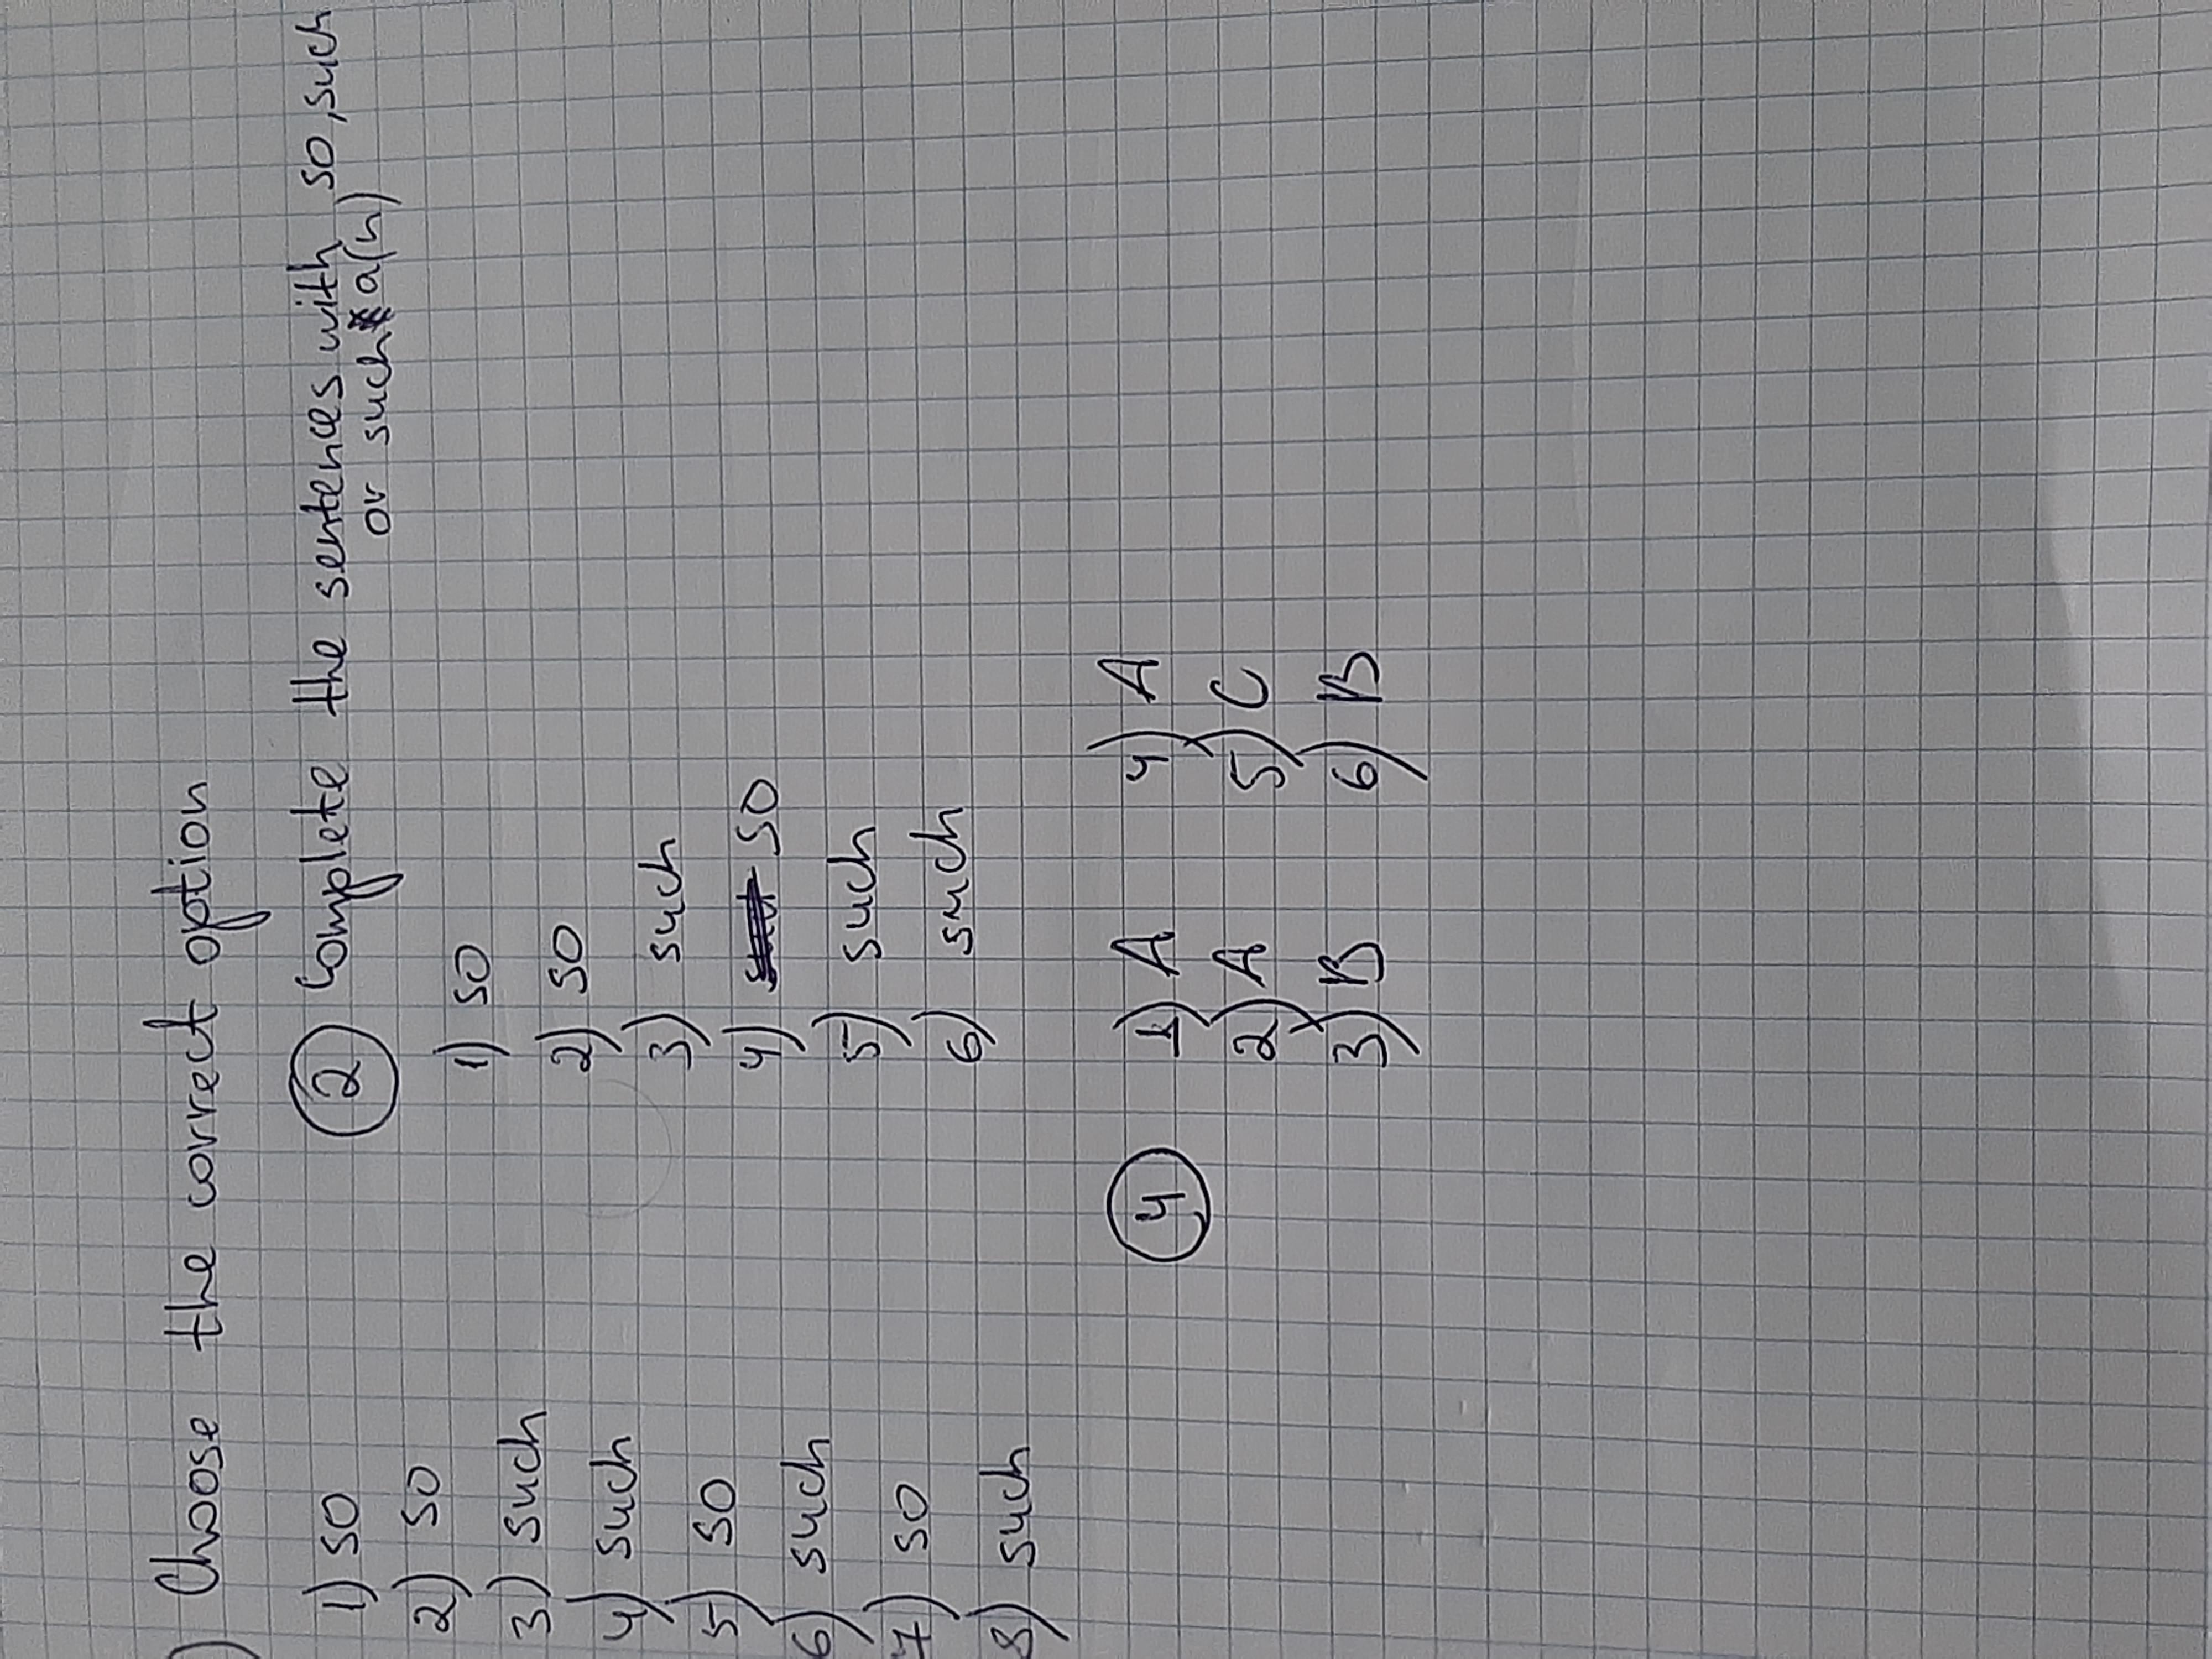 ) Choose the correct option
1) so
2) so
3) such
4) such
5) so
6) such
7) so
8) such
2 Complete the sentences with so, such
or such a(n)
1) so
2) so
3) such
4) so
5) such
6) such
4
1) A
2) A
3) B
4) A
5) C
6) B